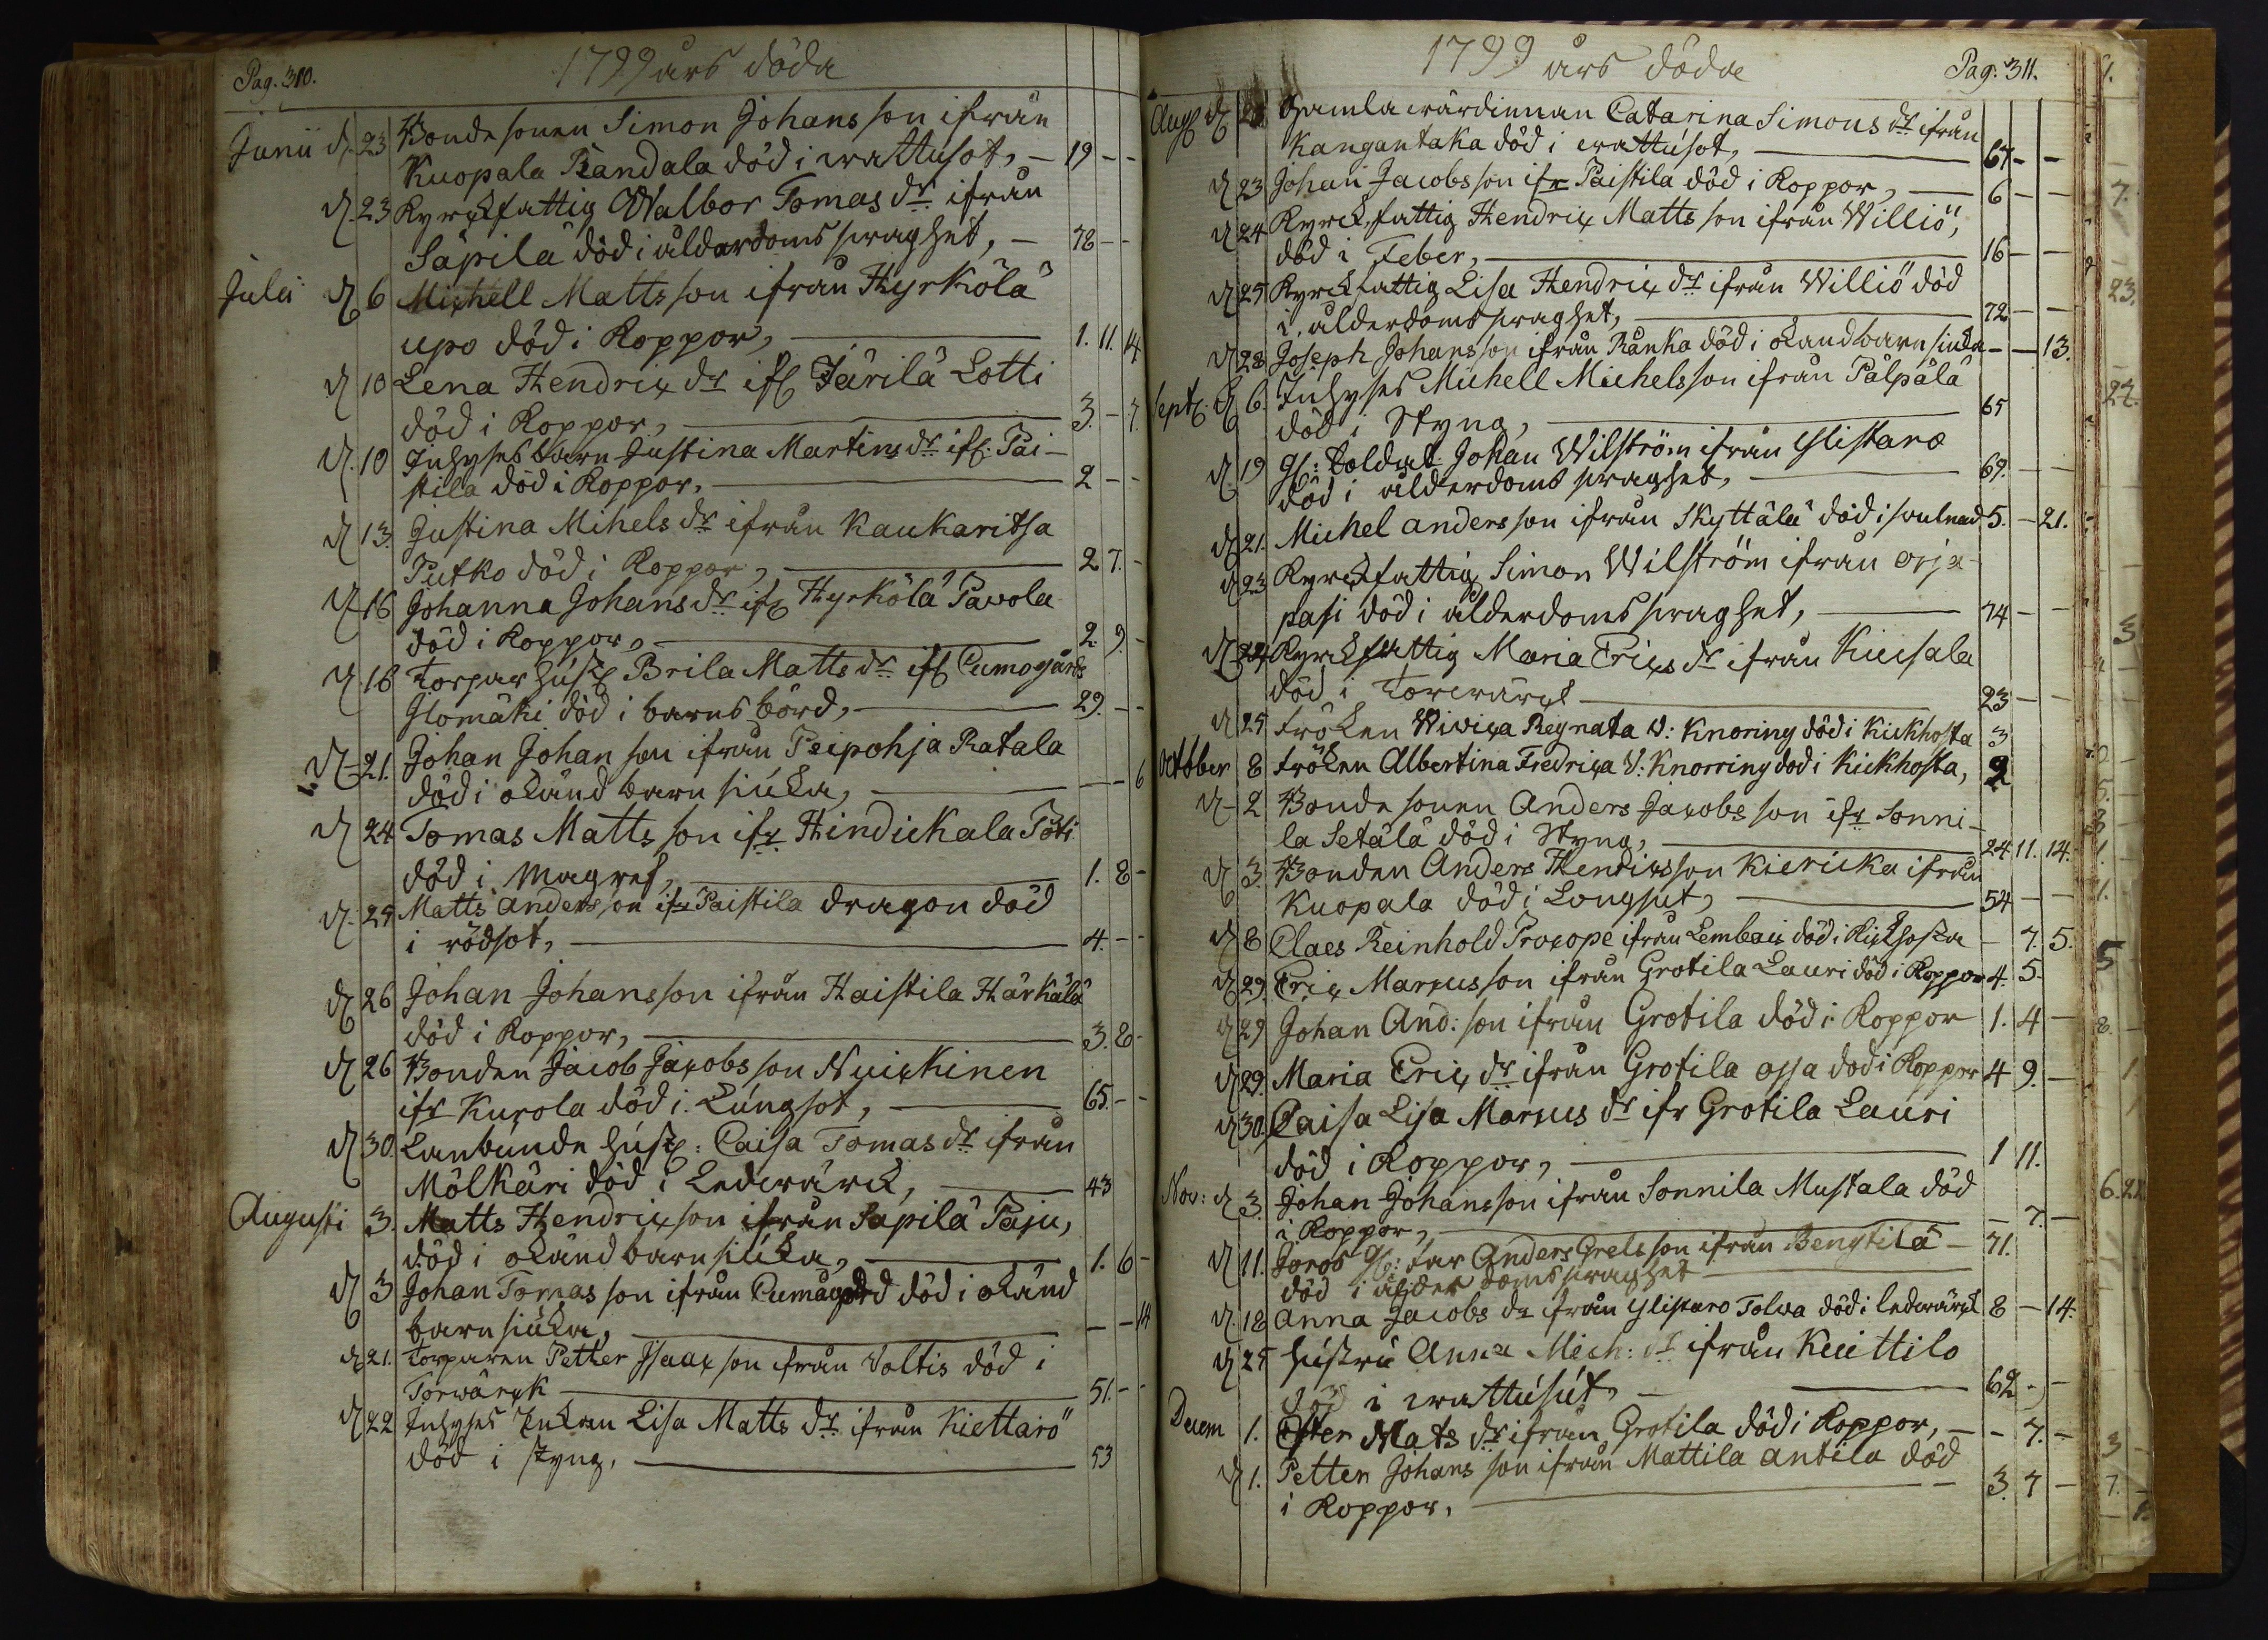 Pag. 310.
1799 års döda
Junii d. 23 Bonde sonen Simon Johans son ifrån
Kuopala Randala död i wattusot, — 19 - -
d. 23 Kyrckfattig Walbor Tomas dr ifrån
Säpilä död i ålderdoms swaghet, — 78 - -
Julii d 6 Michell Matts son ifrån Hyrkölä
upo död i Koppor, 1. 11. 14
d 10 Lena Hendrix dr if: Järilä Lotti
död i Koppor, 3. - 7.
d. 10 Inhyses barn Justina Martins dr if: Pai-
stila död i Koppor, 2 - -
d 13. Justina Mihels dr ifrån Kaukaritsa
Putko död i Koppor, 2 7. -
d 16 Johanna Johans dr if: Hyrkölä Pavola
död i Koppor, 2. 9. -
d. 18 Torpar hust: Brita Matts dr if: Cumogårds
Isomäki död i barns börd, 29. - -
d. 21. Johan Johan son ifrån Peipohja Ratala
död i okänd barn siuka, - - 6
d 24 Tomas Matts son ifr Hindickala Töti
död i Magref, 1. 8 -
d. 25 Matts anders son ifr Paistila dragon död
i rödsot, 4. - -
d 26 Johan Johansson ifrån Haistila Härkälä
död i Koppor, 3. 8 -
d 26 Bonden Jacob Jacobs son Nuickinen
ifr Kurola död i Lungsot, 65. - -
d 30. Lanbunde hust: Caisa Tomas dr ifrån
Mölkäri död i Ledwärck, 43
Augusti 3. Matts Hendrixson ifrån Säpilä Paju,
död i okänd barn siuka, 1. 6 -
d 3 Johan Tomas son ifrån Cumågård död i okänd
barn siuka, - - 14
d 21. Torparen Petter Isaax son ifrån Voltis död i
Torwärck 51. - -
d 22 Inhyses Enkan Lisa Matts dr ifrån Kiettarö
död i styng, 53
1799 års döda
Pag: 311.
Aug: d Gamla wärdinnan Catarina Simons dr ifrån
Kangantaka död i wattusot, 67 - -
d 23 Johan Jacobs son ifr Paistila död i Koppor, 6 - -
d 24 Kyrck fattig Hendrix Matts son ifrån Williö,
död i Feber, 16 - -
d 25 Kyrckfattig Lisa Hendrix dr ifrån Williö död
i ålderdoms swaghet, 72 - -
d 28 Joseph Johansson ifrån Ränka död i okänd barn siuka - - 13.
Sept: d 6. Inhyses Michell Michelsson ifrån Pälpälä
död i Styng, 65
d. 19 Gl: Soldat Johan Wilström ifrån Ylistaro
död i ålderdoms swaghet, 69. - -
d 21. Michel anders son ifrån Skyttälä död i swulnad 5. - 21.
d 23 Kyrckfattig Simon Wilström ifrån orja-
pasi död i ålderdoms swaghet, 74 - -
d 24 Kyrckfattig Maria Erics dr ifrån Kuisala
död i Torrwärck 23 - -
d 25 Fröken Wivica Regnata V: Knoring död i Kickhosta 3
October 8 Fröken Albertina Fredrica V: Knorring död i Kickhosta, 2
d - 2 Bonde sonen Anders Jacobs son ifr Sonni-
la Setälä död i Styng, 24 11. 14.
d 3. Bonden Anders Henrixson Kiericka ifrån
Kuopala död i Longsut, 54 - -
d 8 Claes Reinhold Procope ifrån Lembois död i Kickhosta - 7. 5.
d 29. Eric Marcusson ifrån Grotila Lauri död i Koppor 4. 5.
d 29 Johan And: son ifrån Grotila död i Koppor 1. 4 -
d 29. Maria Erix dr ifrån Grotila ossa dod i Koppor 4 9. -
d 30. Caisa Lisa Marcus dr ifr Grotila Lauri
död i Koppor, 1 11.
Nov: d 3. Johan Johansson ifrån Sonnila Mustala död
i Koppor, - 7. -
d 11. Gl: far Anders Grels son ifrån Bengtilä - 71.
död i ålder doms swaghet
d. 18 Anna Jacobs dr ifrån Ylistaro Tolva död i ledwärck 8 - 14.
d 25 hustru Anna Mich: dr ifrån Kuittilo
död i wattusut, 62 - -
Decem 1. Ester Mats dr ifrån Grotila död i Koppor, - - 7. -
d 1. Petter Johans son ifrån Mattila antila död
i Koppor, 3. 7 -